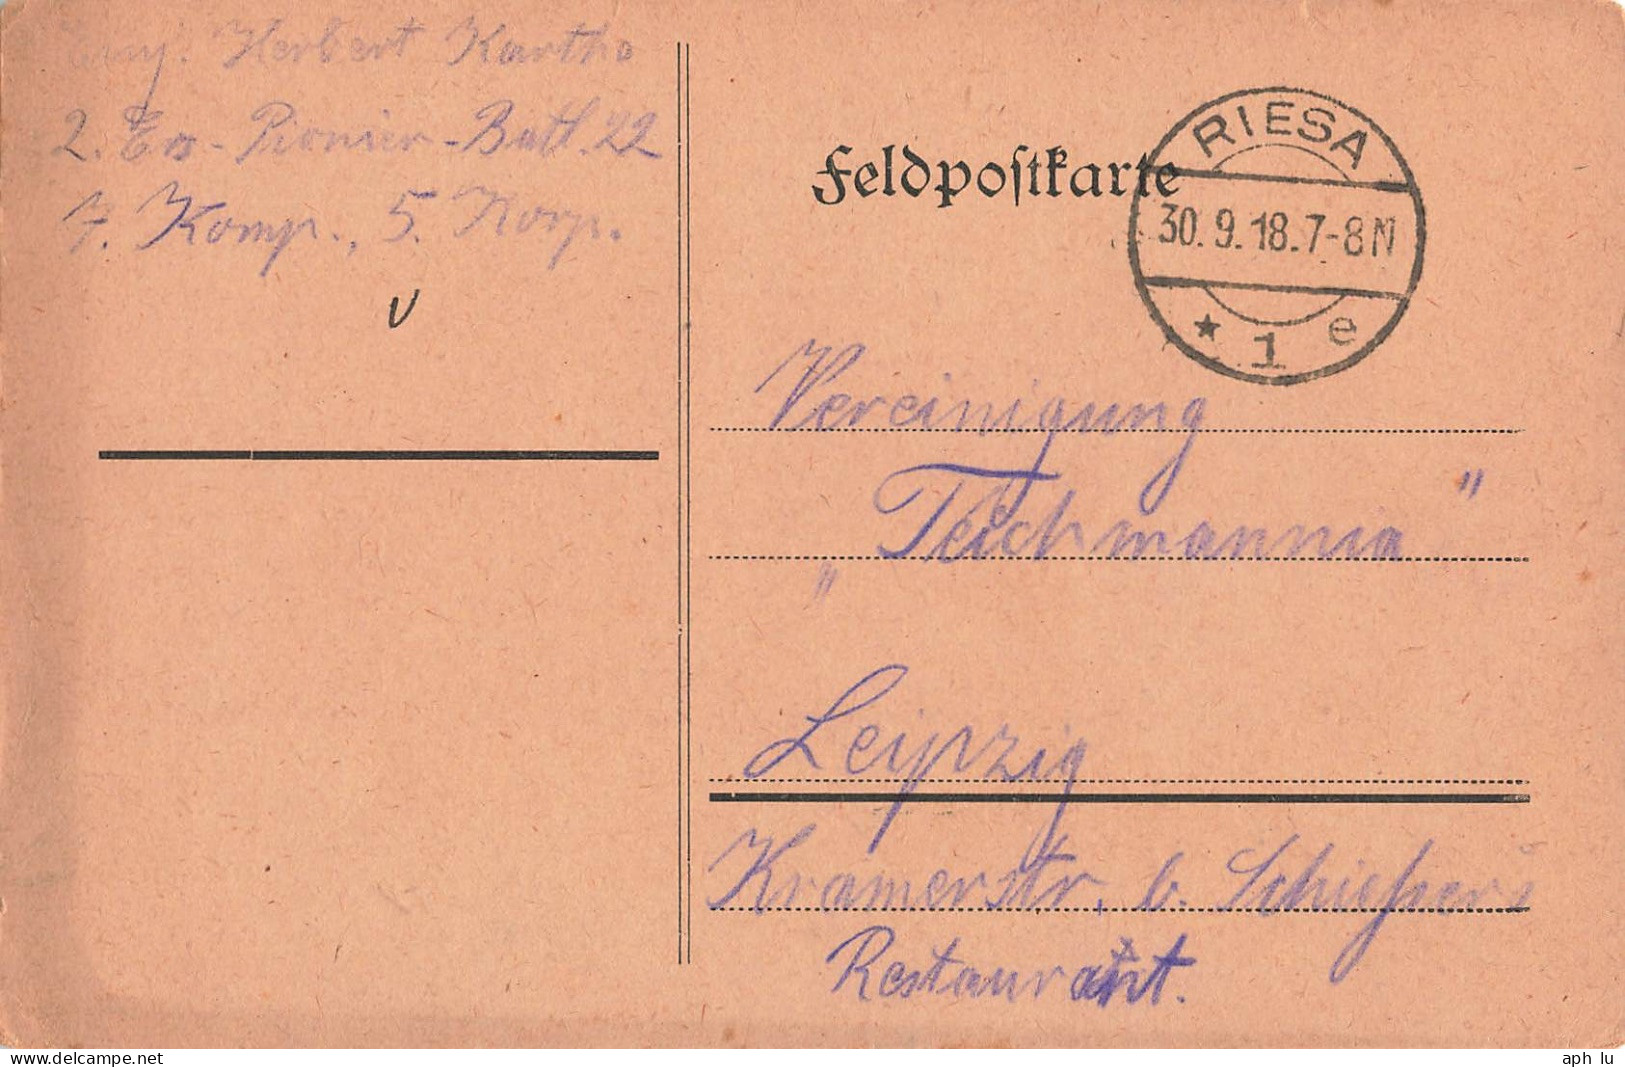 Herbert Kartho
2. Ers-Pionier-Batl. 22
7. Komp., 5. Korp.
Feldpostkarte
RIESA
30.9.18.7-8N
* 1 e
Vereinigung
„Teichmannia"
Leipzig
Kramerstr. b.
Restaurant.
www.delcampe.net
aph lu